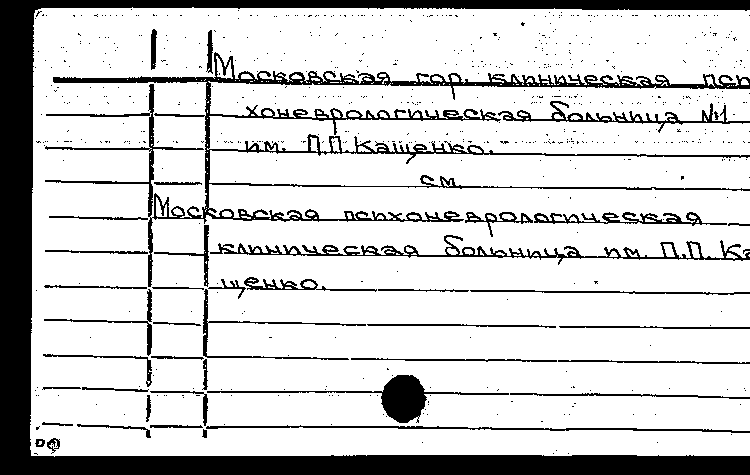 Московская гор. клиническая пси
хоневрологическая больница №1
им. П.П. Кащенко.
см.
Московская психоневрологическая
клиническая больница им. П.П. Ка
щенко.